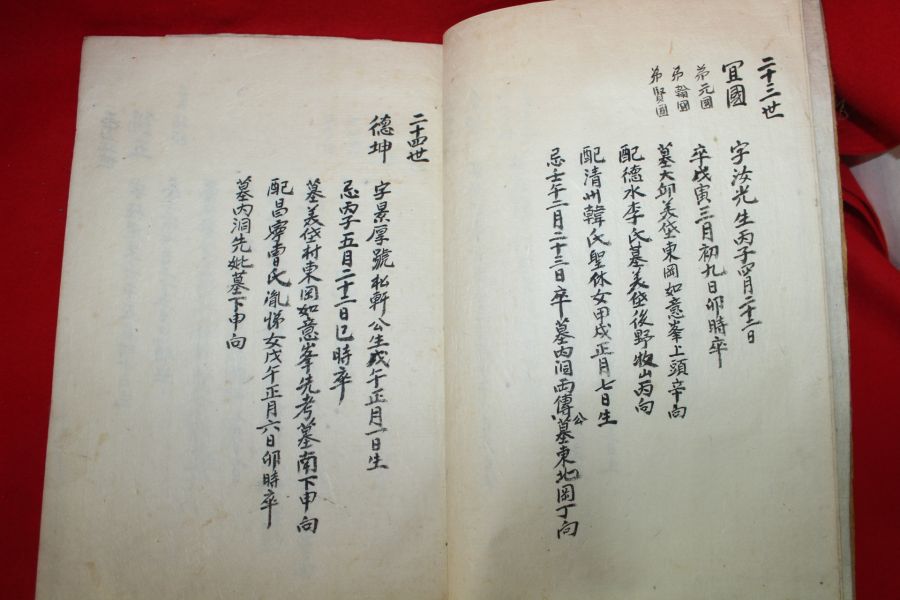 二十三世
宜國
弟元國
弟輪國
弟賢國
字汝光生丙子四月二十二日
卒戊寅三月初九日卯時卒
墓大邱美岱東岡如意峯上頭辛向
配德水李氏墓美岱後野牧山丙向
配清州韓氏聖休女甲戌正月七日生
忌壬午二月二十三日卒墓內洞兩傳公墓東北岡丁向
二十四世
德坤
字景厚號松軒公生戊午正月一日生
忌丙子五月二十二日巳時卒
墓美岱村東岡如意峯先考墓南下申向
配昌寧曺氏胤悌女戊午正月六日卯時卒
墓內洞先妣墓下申向